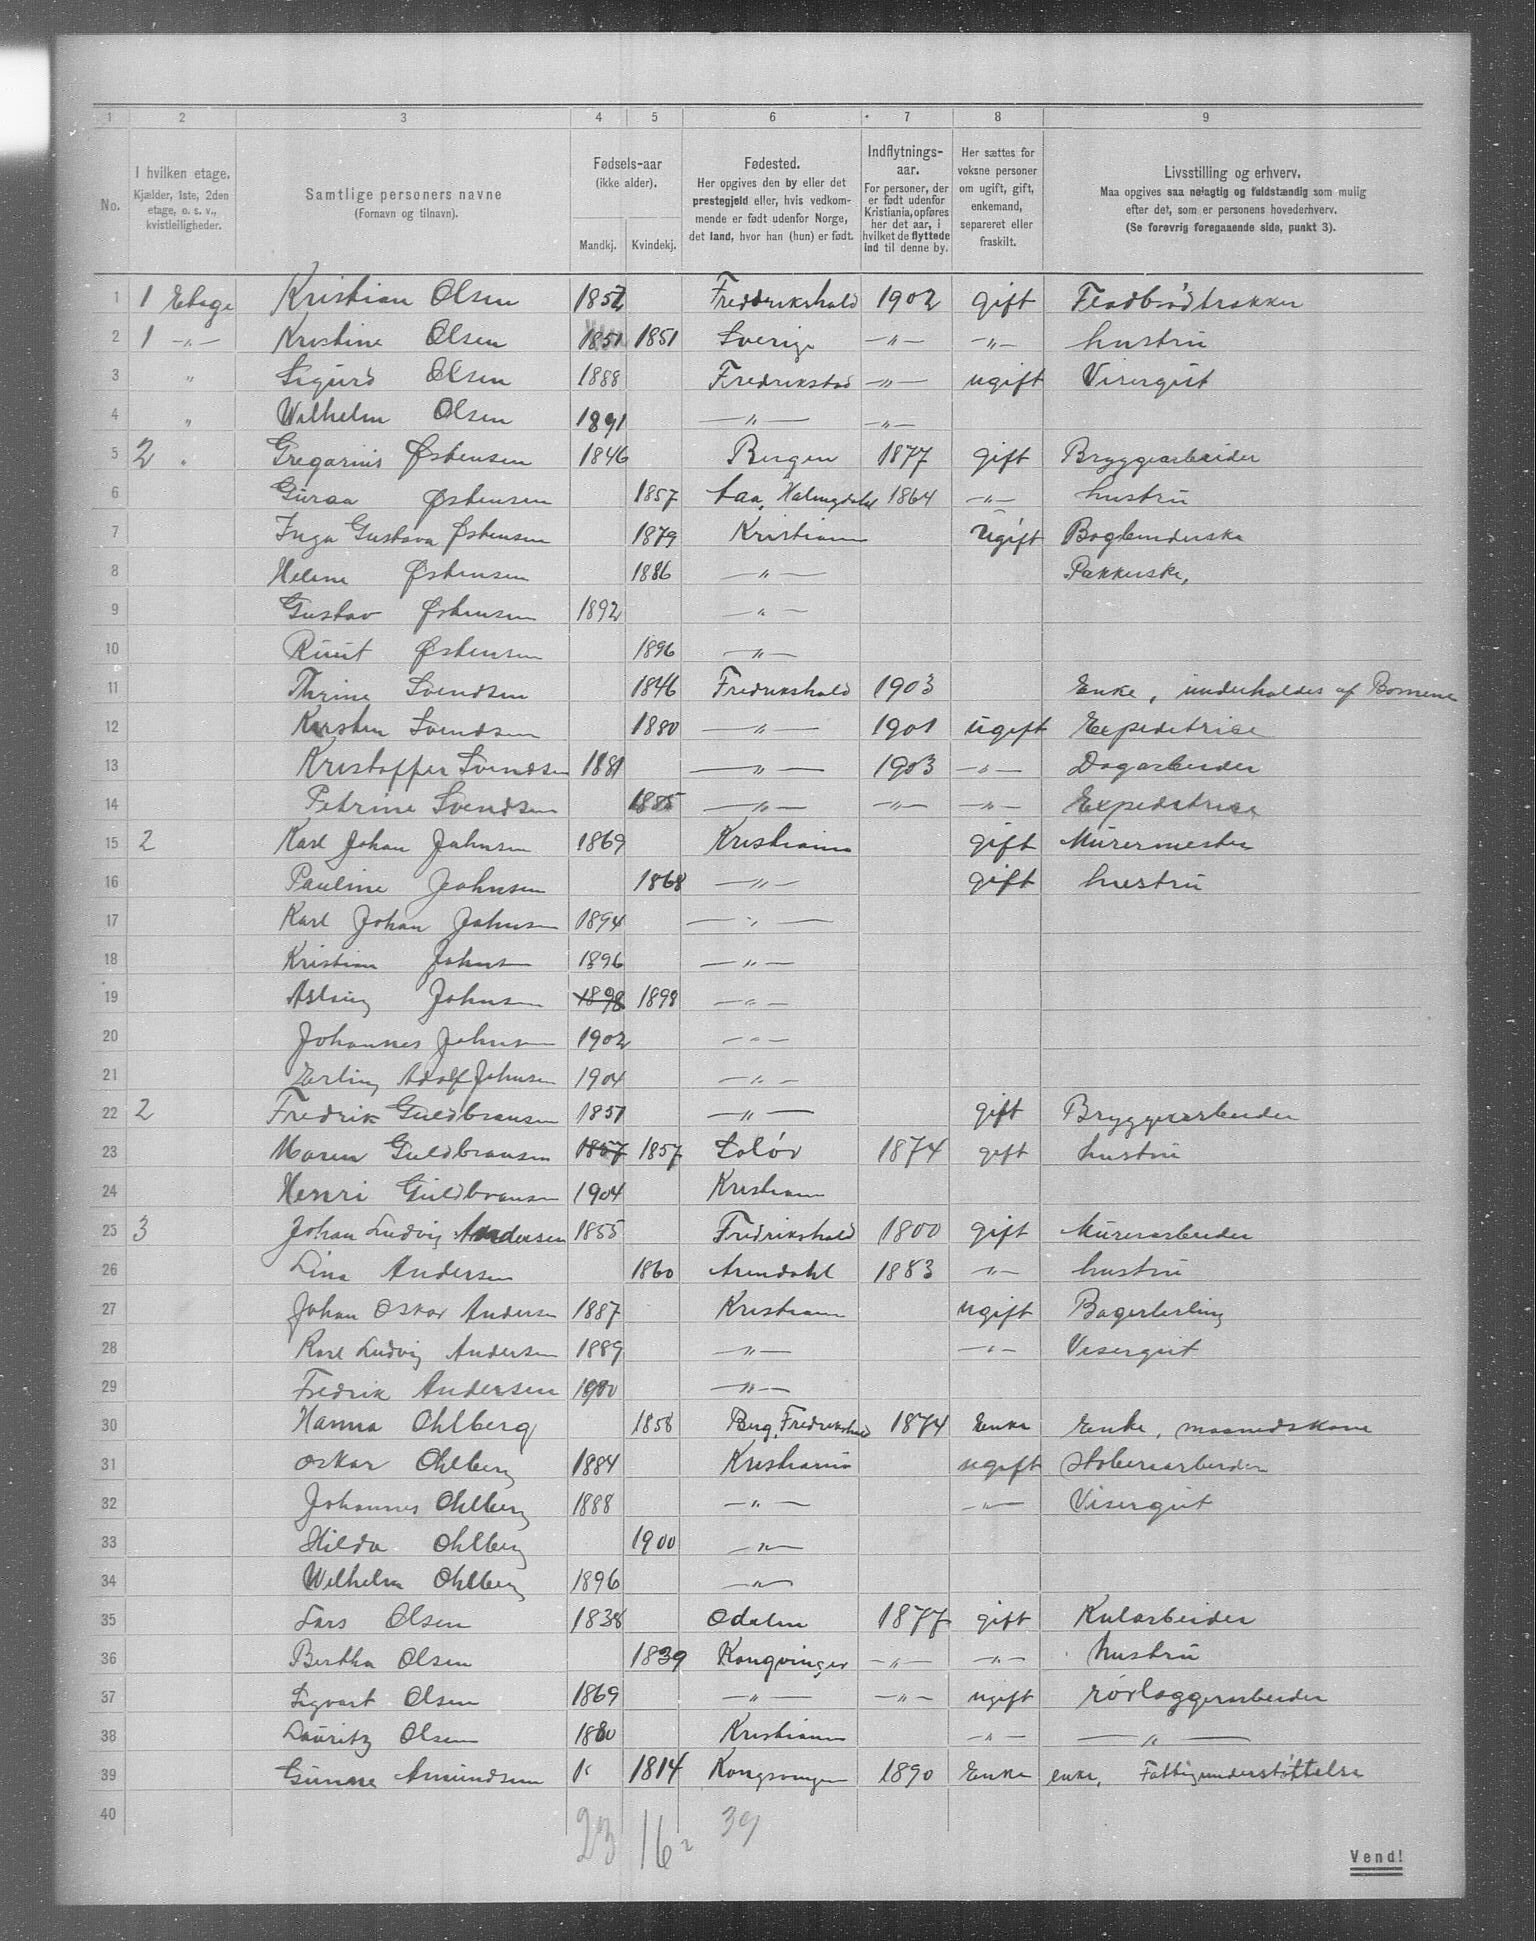 1 2 3 4 5 6 7 8 9
No.
I hvilken etage.
Kjælder, 1ste, 2den
etage, o. s. v.,
kvistleiligheder.
Samtlige personers navne
(Fornavn og tilnavn).
Fødsels-aar
(ikke alder).
Mandkj. Kvindekj.
Fødested.
Her opgives den by eller det
prestegjeld eller, hvis vedkom-
mende er født udenfor Norge,
det land, hvor han (hun) er født.
Indflytnings-
aar.
For personer, der
er født udenfor
Kristiania, opføres
her det aar, i
hvilket de flyttede
ind til denne by.
Her sættes for
voksne personer
om ugift, gift,
enkemand,
separeret eller
fraskilt.
Livsstilling og erhverv.
Maa opgives saa nøiagtig og fuldstændig som mulig
efter det, som er personens hovederhverv.
(Se forøvrig foregaaende side, punkt 3).
1 1 Etage Kristian Olsen 1852 Fredrikshald 1902 gift
2 1 -„- Kristine Olsen 1851 1851 Sverige -„- -„- hustru
3 „ Sigurd Olsen 1888 Fredrikstad -„- ugift Visergut
4 „ Wilhelm Olsen 1891 -„- -„-
5 2 „ Gregarius Østensen 1846 Bergen 1877 gift Bryggearbeider
6 Guraa Østensen 1857 Halingdahl 1864 -„- hustru
7 Inga Gustava Østensen 1879 Kristiania ugift Bogbinderske
8 Helene Østensen 1886 -„- Pakkerske,
9 Gustav Østensen 1892 -„-
10 Ruut Østensen 1896 -„-
11 Thrine Svendsen 1846 Fredrikshald 1903 Enke, underholdes af Børnene
12 Kirsten Svendsen 1880 -„- 1901 ugift Expeditrice
13 Kristoffer Svendsen 1881 -„- 1903 -„- Dagarbeider
14 Petrine Svendsen 1885 -„- -„- -„- Expeditrice
15 2 Karl Johan Johnsen 1869 Kristiania gift Murermester
16 Pauline Johnsen 1868 -„- gift hustru
17 Karl Johan Johnsen 1894 -„-
18 Kristian Johnsen 1896 -„-
19 Aslaug Johnsen 1898 1898 -„-
20 Johannes Johnsen 1902 -„-
21 Erling Adolf Johnsen 1904 -„-
22 2 Fredrik Guldbransen 1851 -„- gift Bryggearbeider
23 Maren Guldbransen 1857 1857 Solør 1874 gift hustru
24 Henri Guldbransen 1904 Kristiania
25 3 Johan Ludvig Andersen 1855 Fredrikshald 1800 gift Murerarbeider
26 Lina Andersen 1860 Arendahl 1883 -„- hustru
27 Johan Oskar Andersen 1887 Kristiania ugift Bagerlerling
28 Karl Ludvig Andersen 1889 -„- -„- Visergut
29 Fredrik Andersen 1900 -„-
30 Hanna Ohlberg 1858 Berg, Fredrikshald 1874 Enke Enke, maanedskone
31 Oskar Ohlberg 1884 Kristiania ugift Støberiarbeider
32 Johannes Ohlberg 1888 -„- -„- Visergut
33 Hilda Ohlberg 1900 -„-
34 Wilhelm Ohlberg 1896 -„-
35 Lars Olsen 1838 Odalen 1877 gift Kularbeider
36 Bertha Olsen 1839 Kongvinger -„- -„- hustru
37 Sigvart Olsen 1869 -„- -„- ugift rørlæggerarbeider
38 Lauritz Olsen 1880 Kristiania -„- -„-
39 Gunare Amundsen K 1814 Kongsvinger 1890 Enke enke, Fattigunderstøttelse
40
23 16 39
Vend!